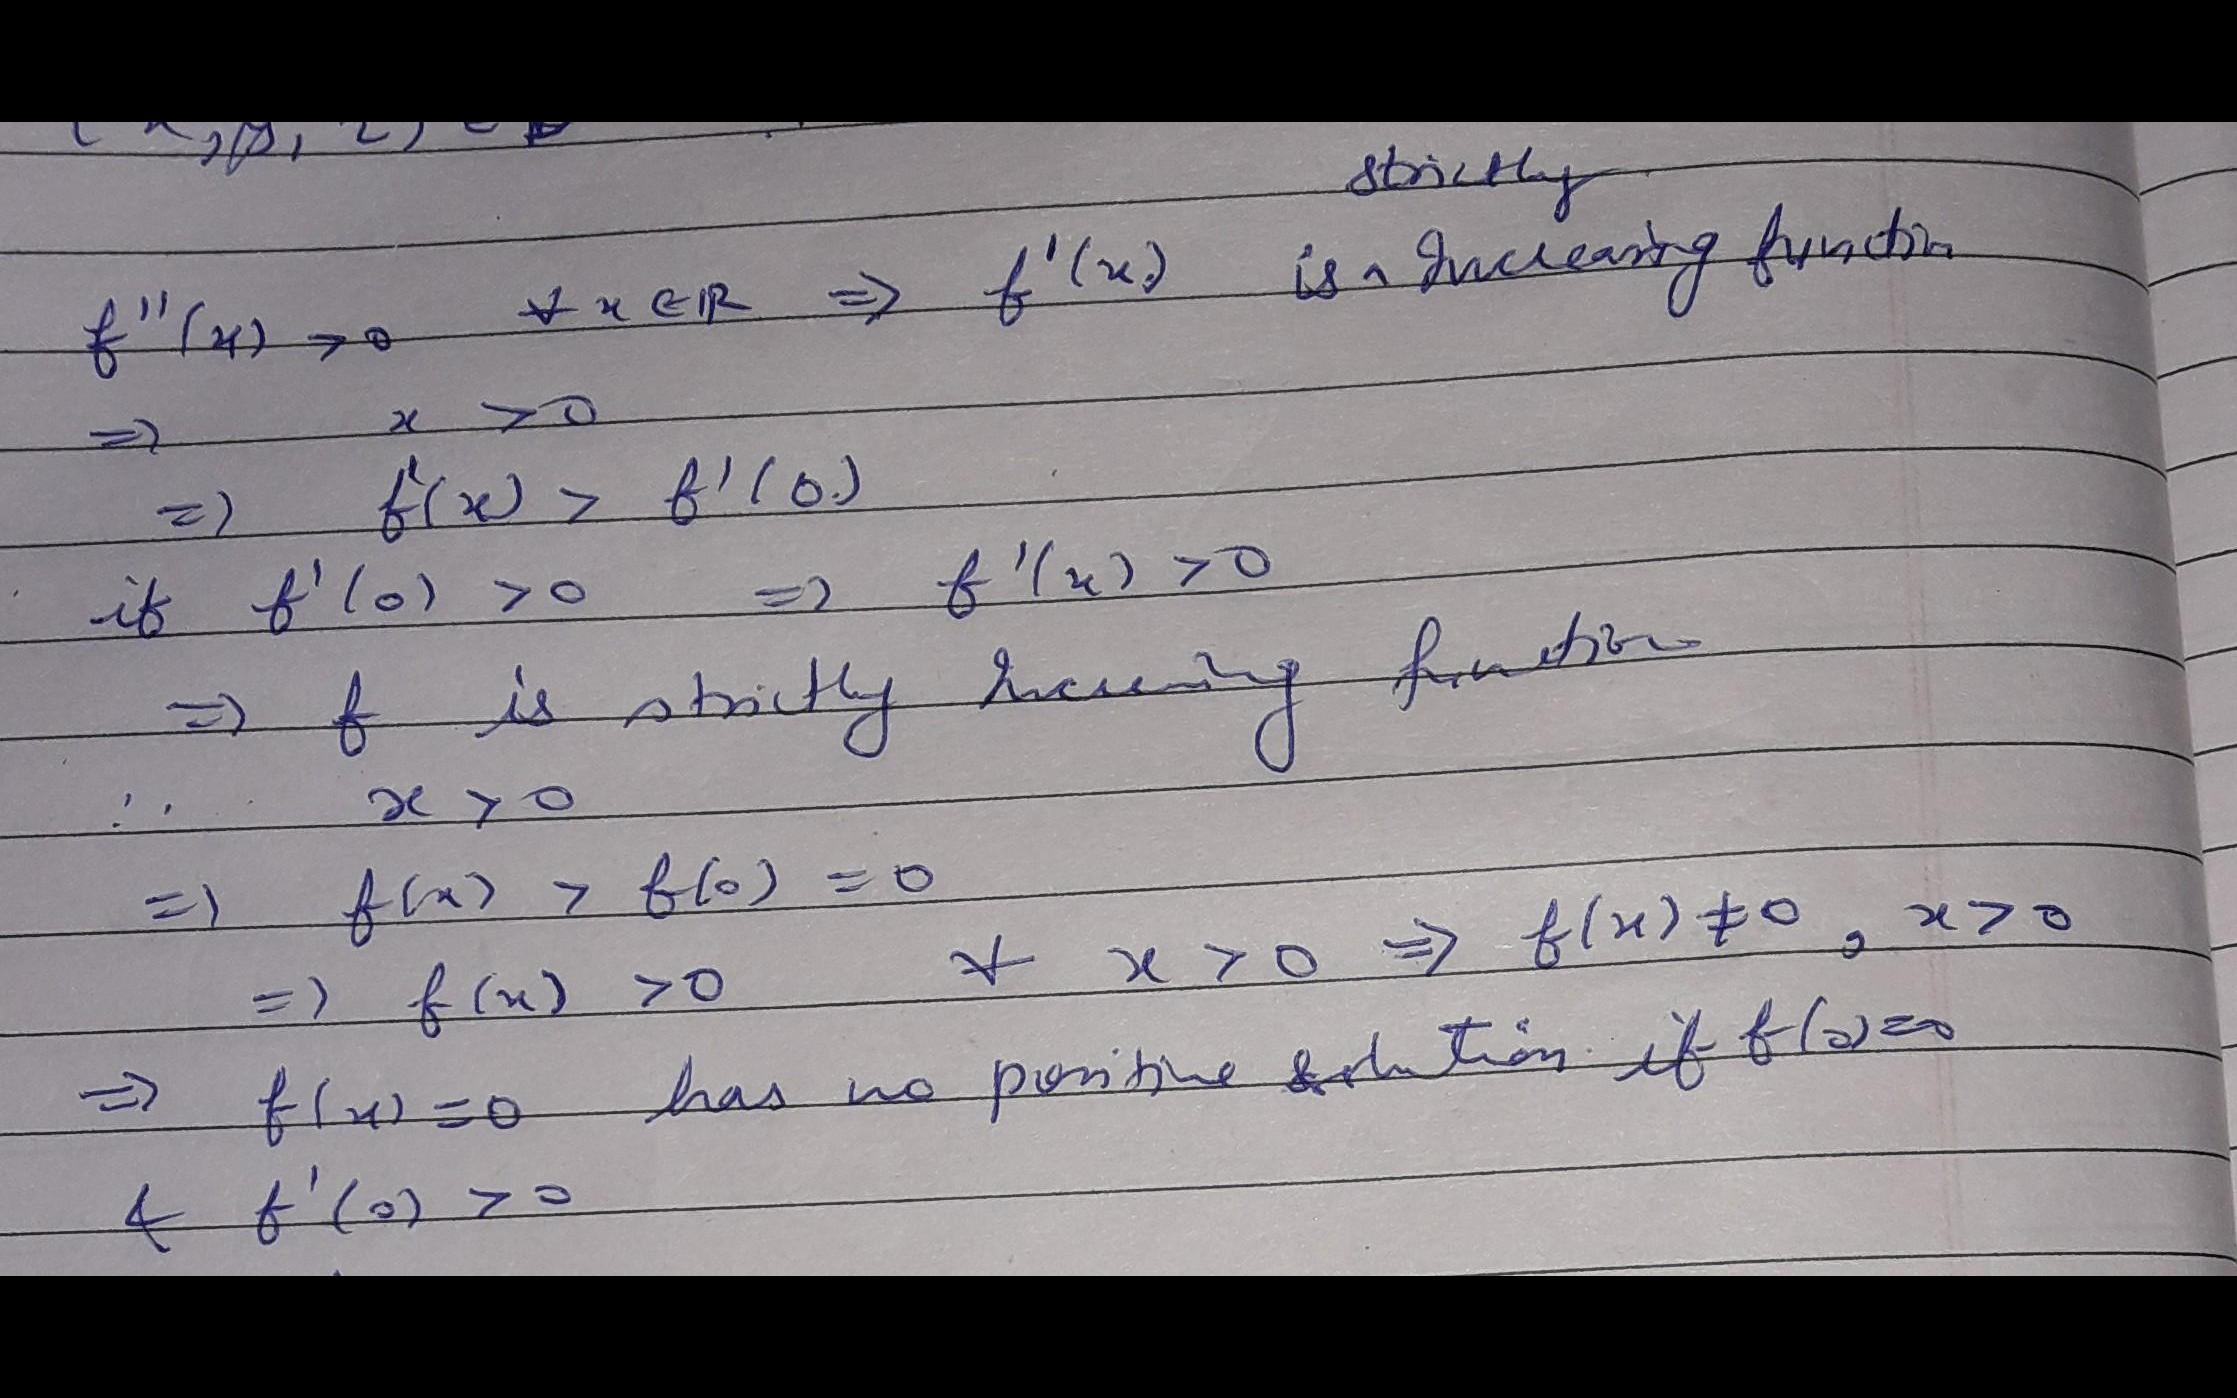 strictly
f''(x) >0 ∀ x ∈ ℝ ⇒ f'(x) is ^ Increasing function
⇒ x > 0
⇒ f'(x) > f'(0)
if f'(0) > 0 ⇒ f'(x) > 0
⇒ f is strictly Increasing function
∴ x > 0
⇒ f(x) > f(0) = 0
⇒ f(x) > 0 ∀ x > 0 ⇒ f(x) ≠ 0 , x > 0
⇒ f(x) = 0 has no positive solution if f(0)=0
& f'(0) > 0